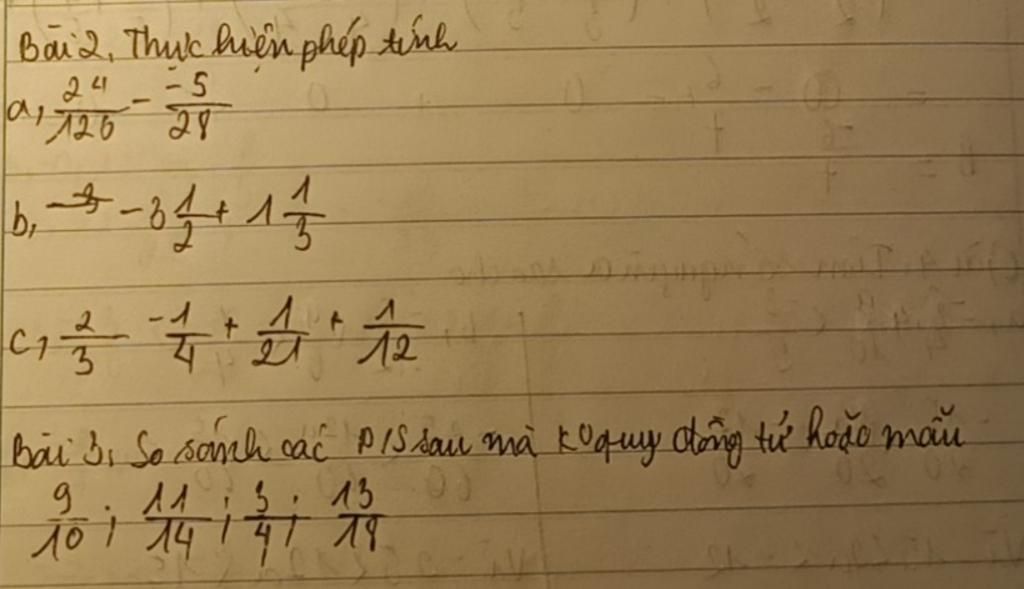 Bài 2, Thực hiện phép tính
a, 24/126 - -5/28
b, -3 1/2 + 1 1/3
c, 2/3 -1/4 + 1/21 + 1/12
Bài 3, So sánh các P/S sau mà K0 quy đồng tử hoặc mẫu
9/10 ; 11/14 ; 3/4 ; 13/18